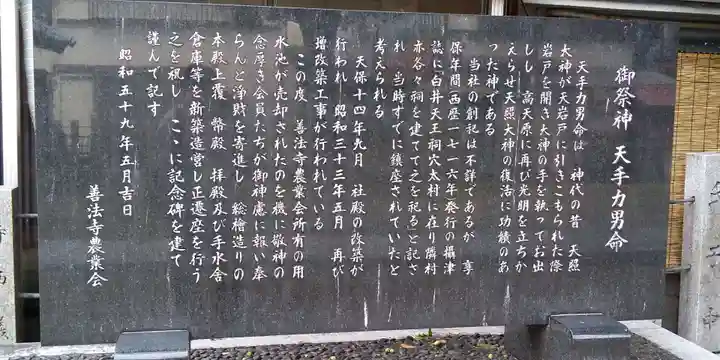 御祭神 天手力男命
天手力男命は 神代の昔 天照
大神が天岩戸に引きこもられた際
岩戸を開き大神の手を執ってお出
しし 高天原に再び光明を立ちか
えらせ天照大神の復活に功績のあ
った神である
当社の創祀は不詳であるが 享
保年間(西歴一七一六年)発行の攝津
誌に白井天王祠穴太村に在り隣村
亦各々祠を建てて之を祀ると記さ
れ 当時すでに鎮座されていたと
考えられる
天保十四年九月 社殿の改築が
行われ 昭和三十三年五月 再び
増改築工事が行われている
この度 善法寺農業会所有の用
水池が売却されたのを機に敬神の
念厚き会員たちが御神慮に報い奉
らんと浄財を寄進し 総檜造りの
本殿上覆 幣殿 拝殿及び手水舎
倉庫等を新築造営し正遷座を行う
之を祝し ここに記念碑を建て
謹んで記す
昭和五十九年五月吉日
善法寺農業会